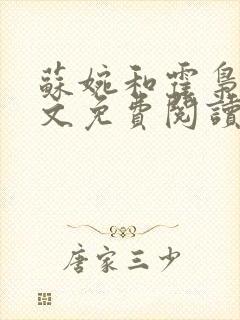 蘇婉和霆梟
文免費閱讀
唐家三少